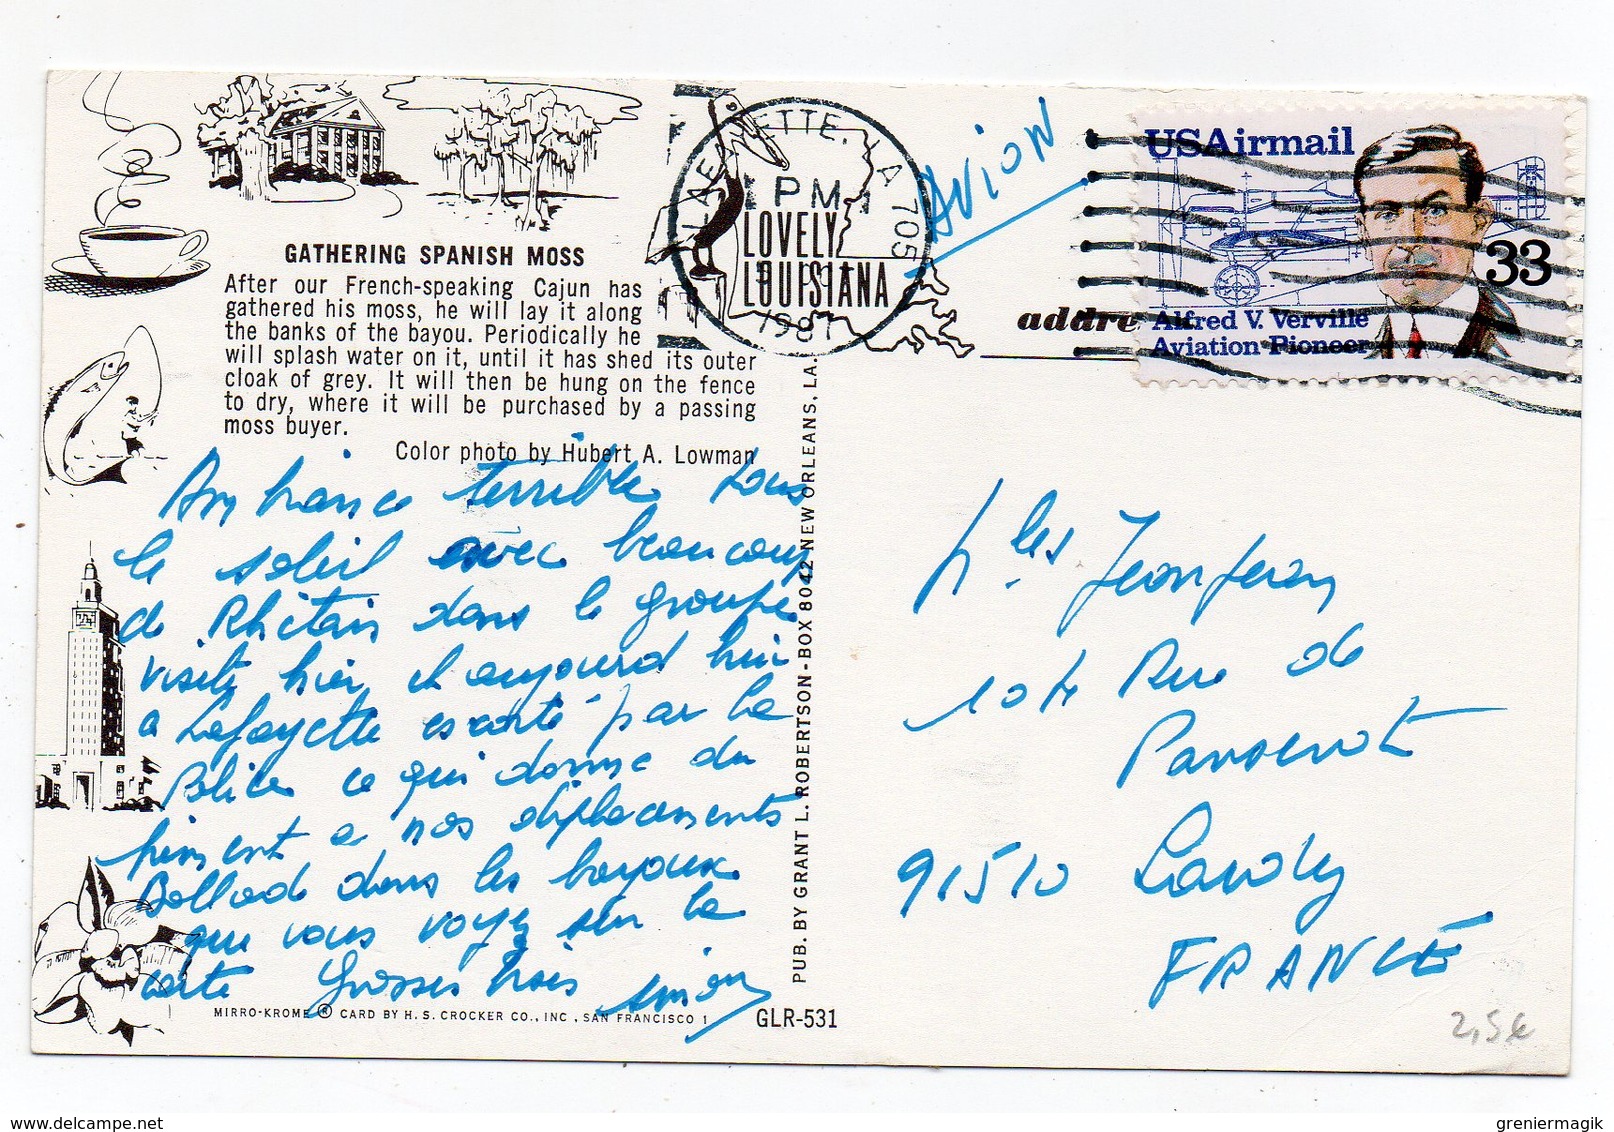 GATHERING SPANISH MOSS
After our French-speaking Cajun has
gathered his moss, he will lay it along
the banks of the bayou. Periodically he
will splash water on it, until it has shed its outer
cloak of grey. It will then be hung on the fence
to dry, where it will be purchased by a passing
moss buyer.
Color photo by Hubert A. Lowman
LAFAYETTE, LA 705
PM
1981
LOVELY
LOUISIANA
AVION
addre
USAirmail
33
Alfred V. Verville
Aviation Pioneer
Ambiance terrible sous
le soleil avec beaucoup
de Rhétais dans le groupe
visite hier et aujourd hui
a Lafayette escorté par la
Police ce qui donne du
piment a nos déplacements
Ballade dans les bayoux
que vous voyez sur la
carte Grosses bises
PUB. BY GRANT L. ROBERTSON - BOX 8042 NEW ORLEANS, LA.
104 Rue de
91510 Lardy
FRANCE
MIRRO-KROME ® CARD BY H. S. CROCKER CO., INC., SAN FRANCISCO 1
GLR-531
2,5€
greniermagik
www.delcampe.net